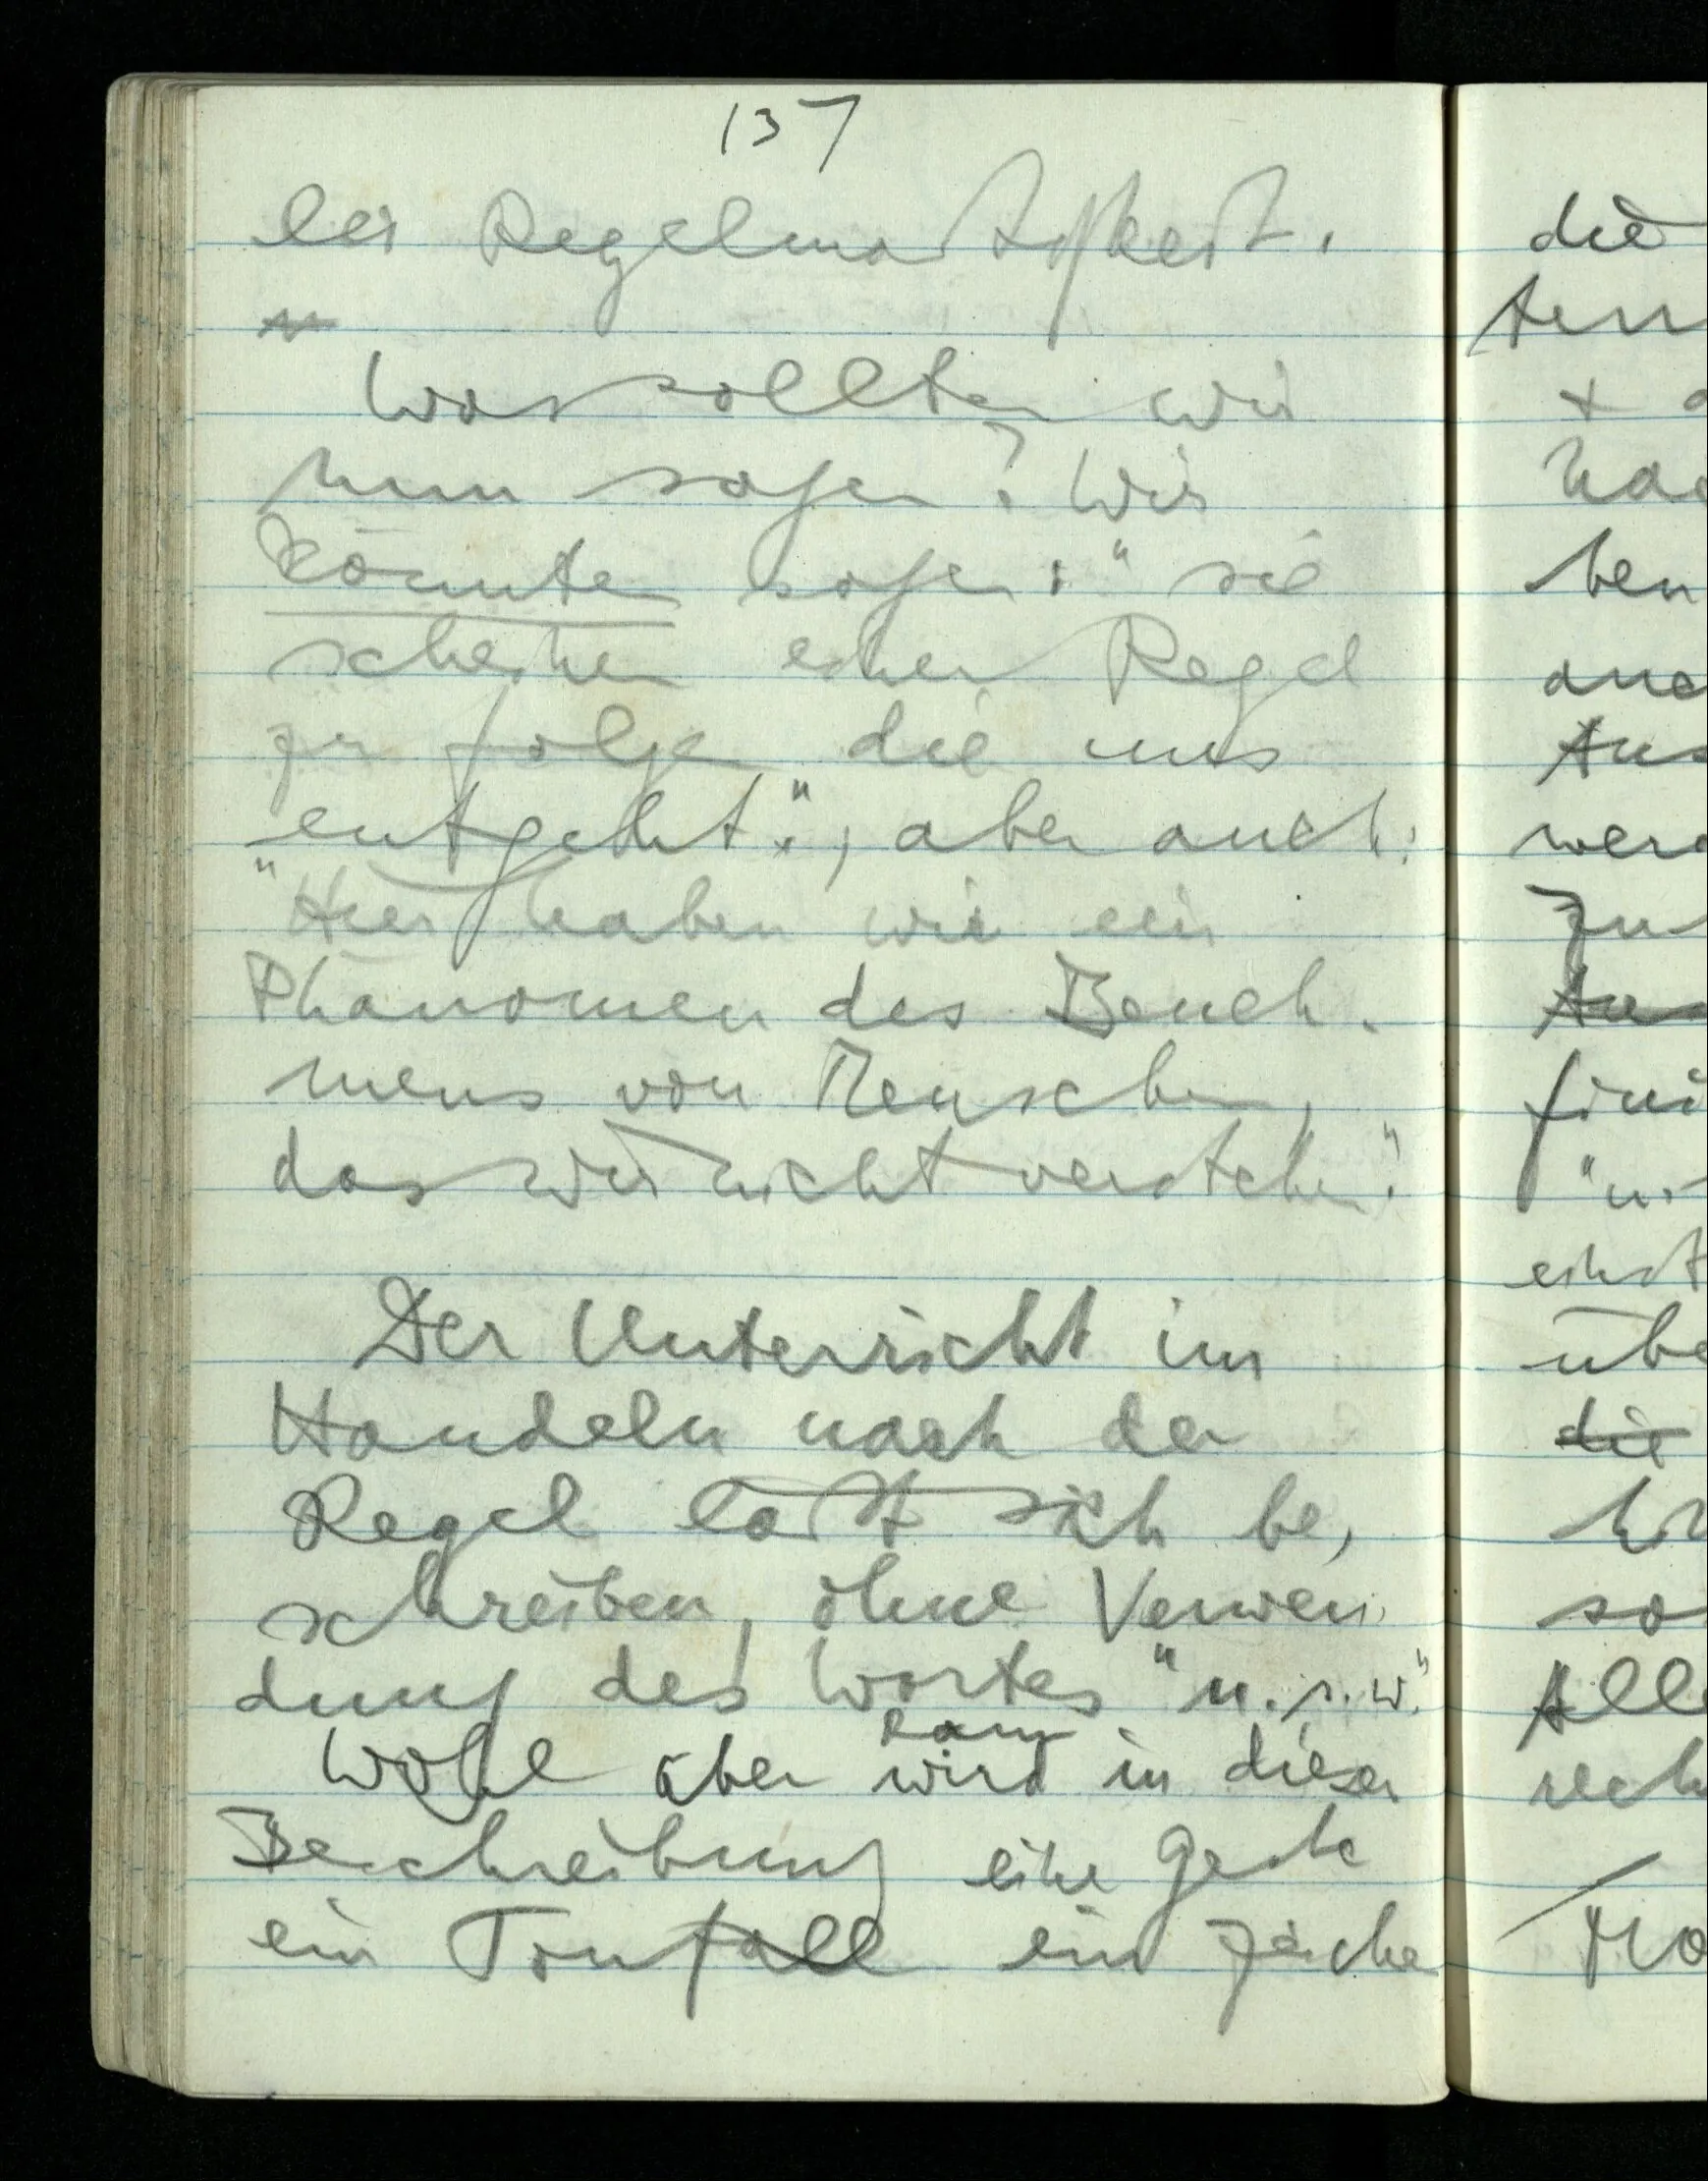 137
lei Regelmäßigkeit.
Was sollten wir
nun sagen? Wir
könnten sagen: "sie
scheinen einer Regel
zu folgen die uns
entgeht.", aber auch:
"Hier haben wir ein
Phänomen des Beneh-
mens von Menschen,
das wir nicht verstehen."
Der Unterricht im
Handeln nach der
Regel läßt sich be-
schreiben, ohne Verwen-
dung des Wortes "u.s.w."
kann
Wohl aber wird in dieser
Beschreibung eine Geste
ein Tonfall ein Zeichen
die